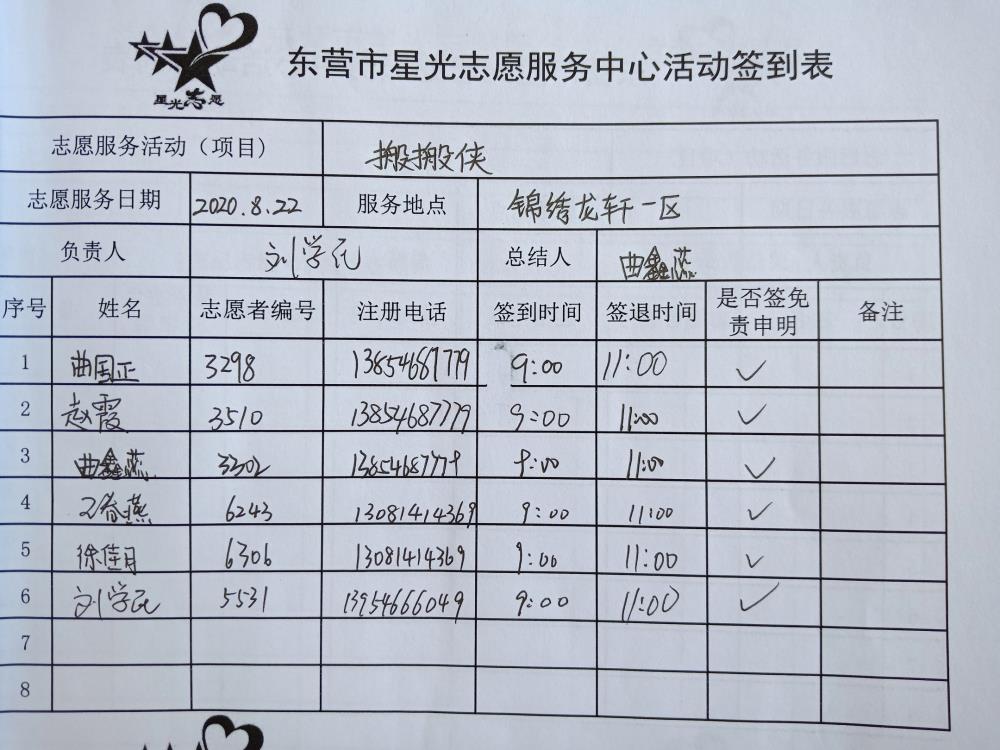 星光志愿
东营市星光志愿服务中心活动签到表
志愿服务活动（项目） 搬搬侠
志愿服务日期 2020.8.22 服务地点 锦绣龙轩一区
负责人 刘学民 总结人 曲鑫蕊
序号 姓名 志愿者编号 注册电话 签到时间 签退时间 是否签免责申明 备注
1 曲国正 3298 13854687779 9:00 11:00 ✓
2 赵霞 3510 13854687779 9:00 11:00 ✓
3 曲鑫蕊 3302 9:00 11:00 ✓
4 6243 13081414369 9:00 11:00 ✓
5 徐佳月 6306 13081414369 9:00 11:00 ✓
6 刘学民 5531 13954666049 9:00 11:00 ✓
7
8